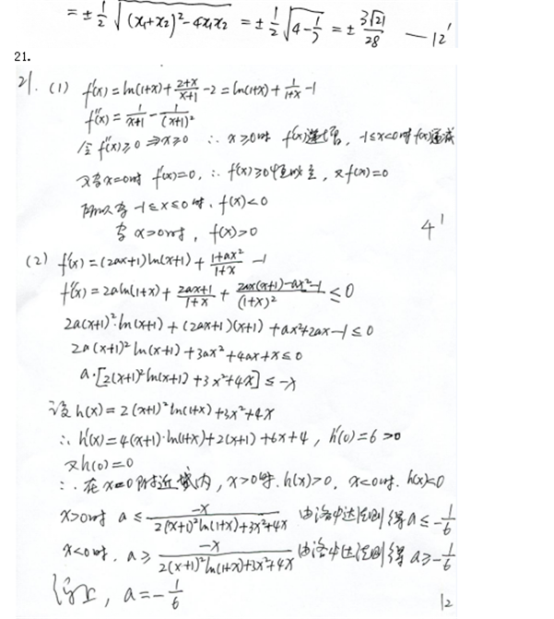 = ± 1/2 √((x₁+x₂)²-4x₁x₂) = ± 1/2 √(4-1/7) = ± 3√21/28 — 12'
21.
21. (1) f'(x)=ln(1+x)+(2+x)/(x+1)-2=ln(1+x)+1/(1+x)-1
f''(x)=1/(x+1)-1/(x+1)²
令f''(x)≥0 ⇒x≥0 ∴ x≥0时 f'(x)递增, -1≤x<0时f'(x)递减
又当x=0时 f'(x)=0, ∴ f'(x)≥0恒成立, 又f(x)=0
所以当 -1≤x≤0时, f(x)<0
当 x>0时, f(x)>0 4'
(2) f'(x)=(2ax+1)ln(x+1)+(1+ax²)/(1+x)-1
f''(x)=2aln(1+x)+(2ax+1)/(1+x)+(2ax(x+1)-ax²-1)/(1+x)²≤0
2a(x+1)²·ln(x+1)+(2ax+1)(x+1)+ax²+2ax-1≤0
2a(x+1)²ln(x+1)+3ax²+4ax+x≤0
a·[2(x+1)²ln(x+1)+3x²+4x]≤-x
设h(x)=2(x+1)²ln(1+x)+3x²+4x
∴ h'(x)=4(x+1)·ln(1+x)+2(x+1)+6x+4, h'(0)=6>0
又h(0)=0
∴ 在x=0附近域内, x>0时. h(x)>0, x<0时. h(x)<0
x>0时 a≤-x/(2(x+1)²ln(1+x)+3x²+4x) 由洛中达法则得a≤-1/6
x<0时. a≥-x/(2(x+1)²ln(1+x)+3x²+4x) 由洛中达法则得a≥-1/6
综上, a=-1/6 12